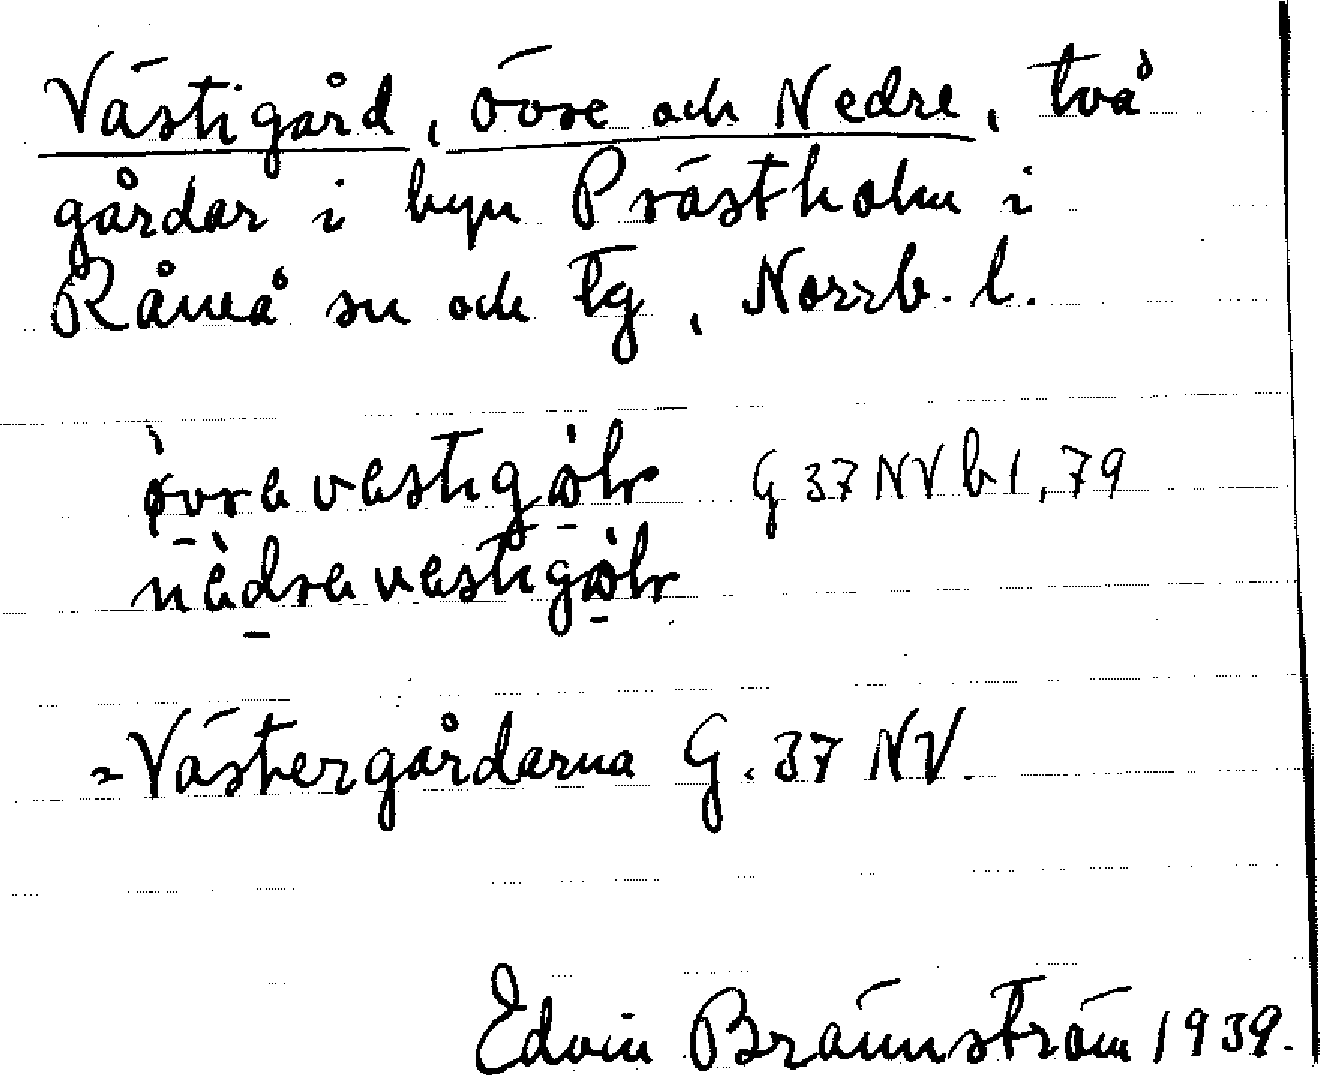 Västigård, Övre och Nedre, två
gårdar i byn Prästholm i
Råneå sn och tg, Norrb. l.
G 37 NV b 1, 79
=Västergårdarna G. 37 NV.
Edvin Brännström 1939.